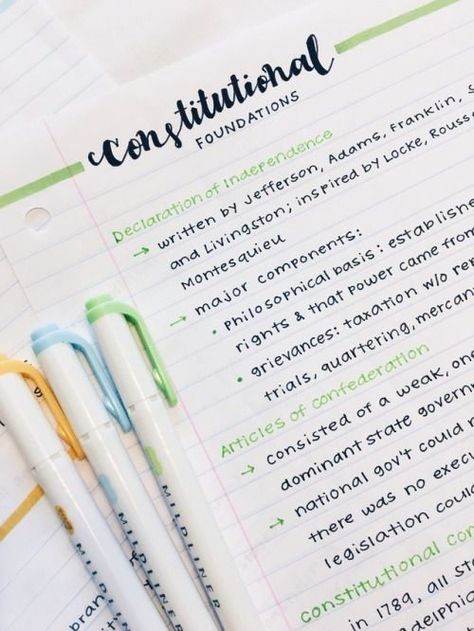 Constitutional
FOUNDATIONS
Declaration of Independence
→ written by Jefferson, Adams, Franklin, S
and Livingston; inspired by Locke, Rouss
Montesquieu
→ major components:
• Philosophical basis: establishe
rights & that power came from
• grievances: taxation w/o rep
trials, quartering, mercan
Articles of Confederation
→ consisted of a weak, on
dominant state govern
→ national gov't could n
there was no execu
legislation could
constitutional con
in 1789, all sta
adelphia
bran
MILDLINER
MILDLINER
MILDLINER